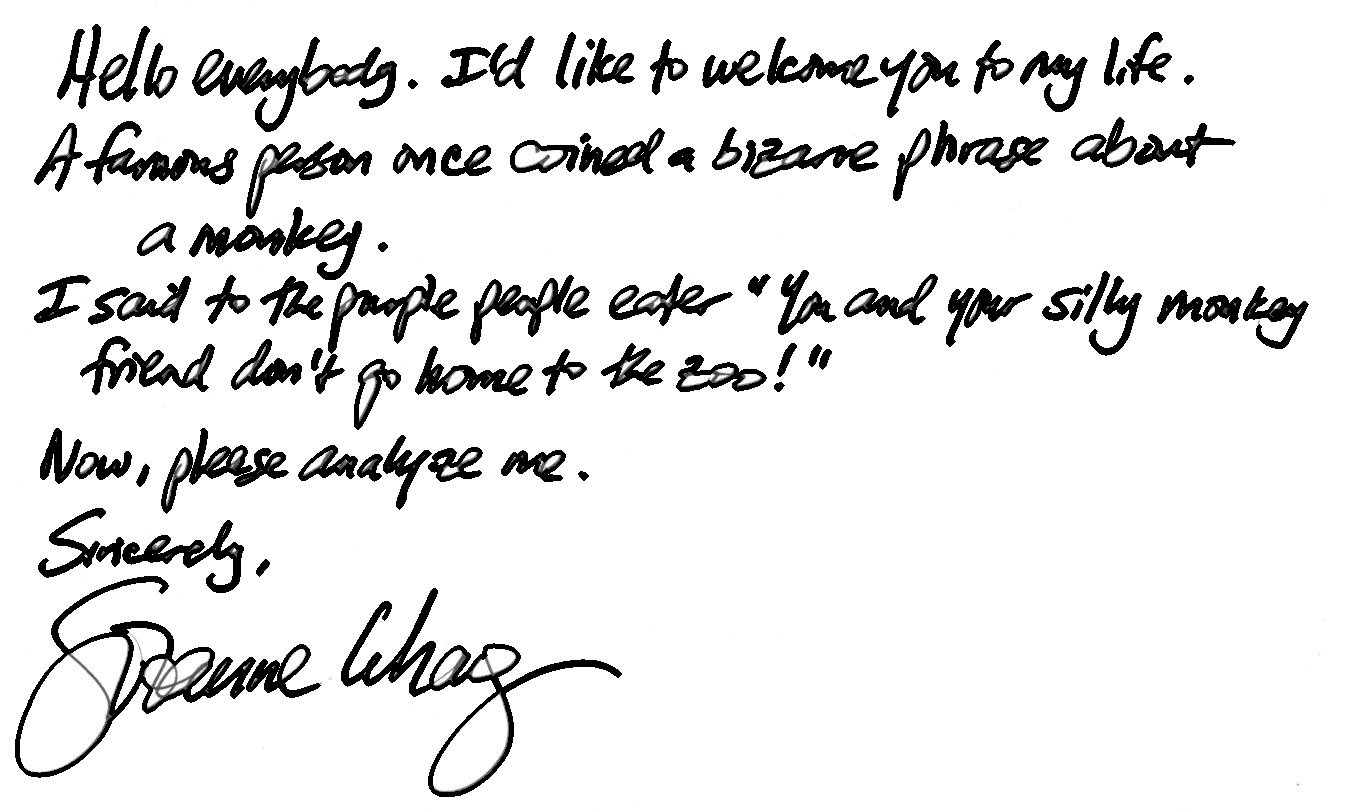 Hello everybody. I'd like to welcome you to my life.
A famous person once coined a bizarre phrase about
a monkey.
I said to the purple people eater "You and your silly monkey
friend don't go home to the zoo!"
Now, please analyze me.
Sincerely,
Joanne